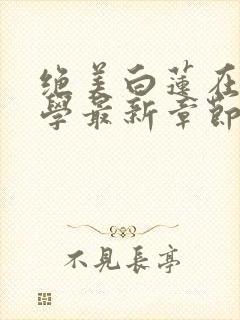 绝美白莲在
學最新章節
不見長亭